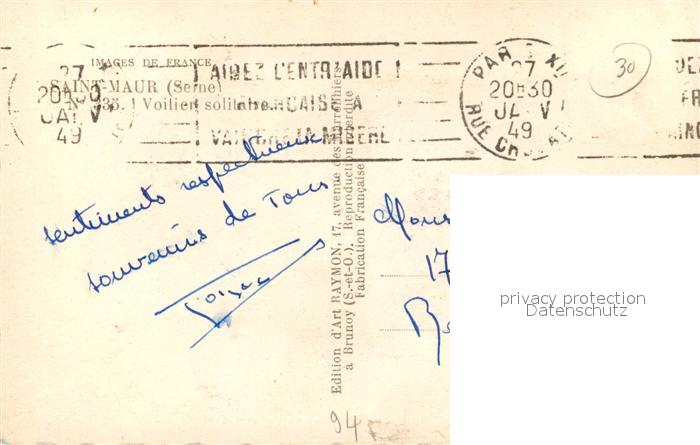 IMAGES DE FRANCE
SAINT-MAUR (Seine)
Voilier solitaire
27
20H30
JANV
49
AIDEZ L'ENTRAIDE !
FRANÇAISE A
VAINCRE LA MISERE
PAR XII
27
20H30
JANV
49
RUE
30
sentiments respectueux
souvenirs de Tous
Edition d'Art RAYMON, 17, avenue des
à Brunoy (S.-et-O.). Reproduction interdite
Fabrication Française
Mons
17
94
privacy protection
Datenschutz